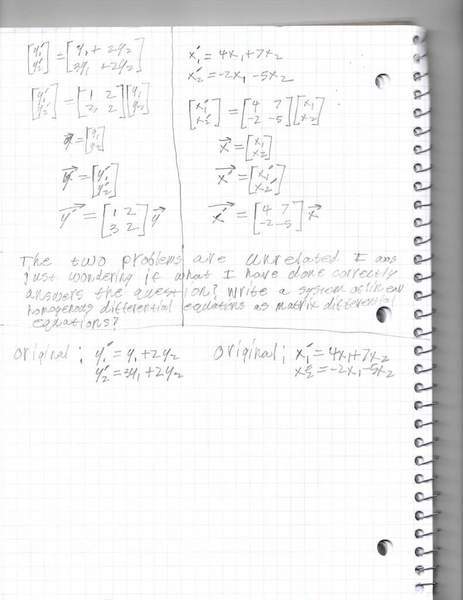 [y₁′ y₂′] = [y₁ + 2y₂ 3y₁ + 2y₂]
[y₁′ y₂′] = [1 2 3 2][y₁ y₂]
y⃗ = [y₁ y₂]
y⃗′ = [y₁′ y₂′]
y⃗′ = [1 2 3 2] y⃗
x₁′ = 4x₁ + 7x₂
x₂′ = -2x₁ - 5x₂
[x₁′ x₂′] = [4 7 -2 -5][x₁ x₂]
x⃗ = [x₁ x₂]
x⃗′ = [x₁′ x₂′]
x⃗′ = [4 7 -2 -5] x⃗
The two problems are unrelated I am
just wondering if what I have done correctly
answers the question? Write a system of linear
homogenous differential equations as matrix differential
equations?
Original; y₁′ = y₁ + 2y₂
y₂′ = 3y₁ + 2y₂
Original; x₁′ = 4x₁ + 7x₂
x₂′ = -2x₁ - 5x₂